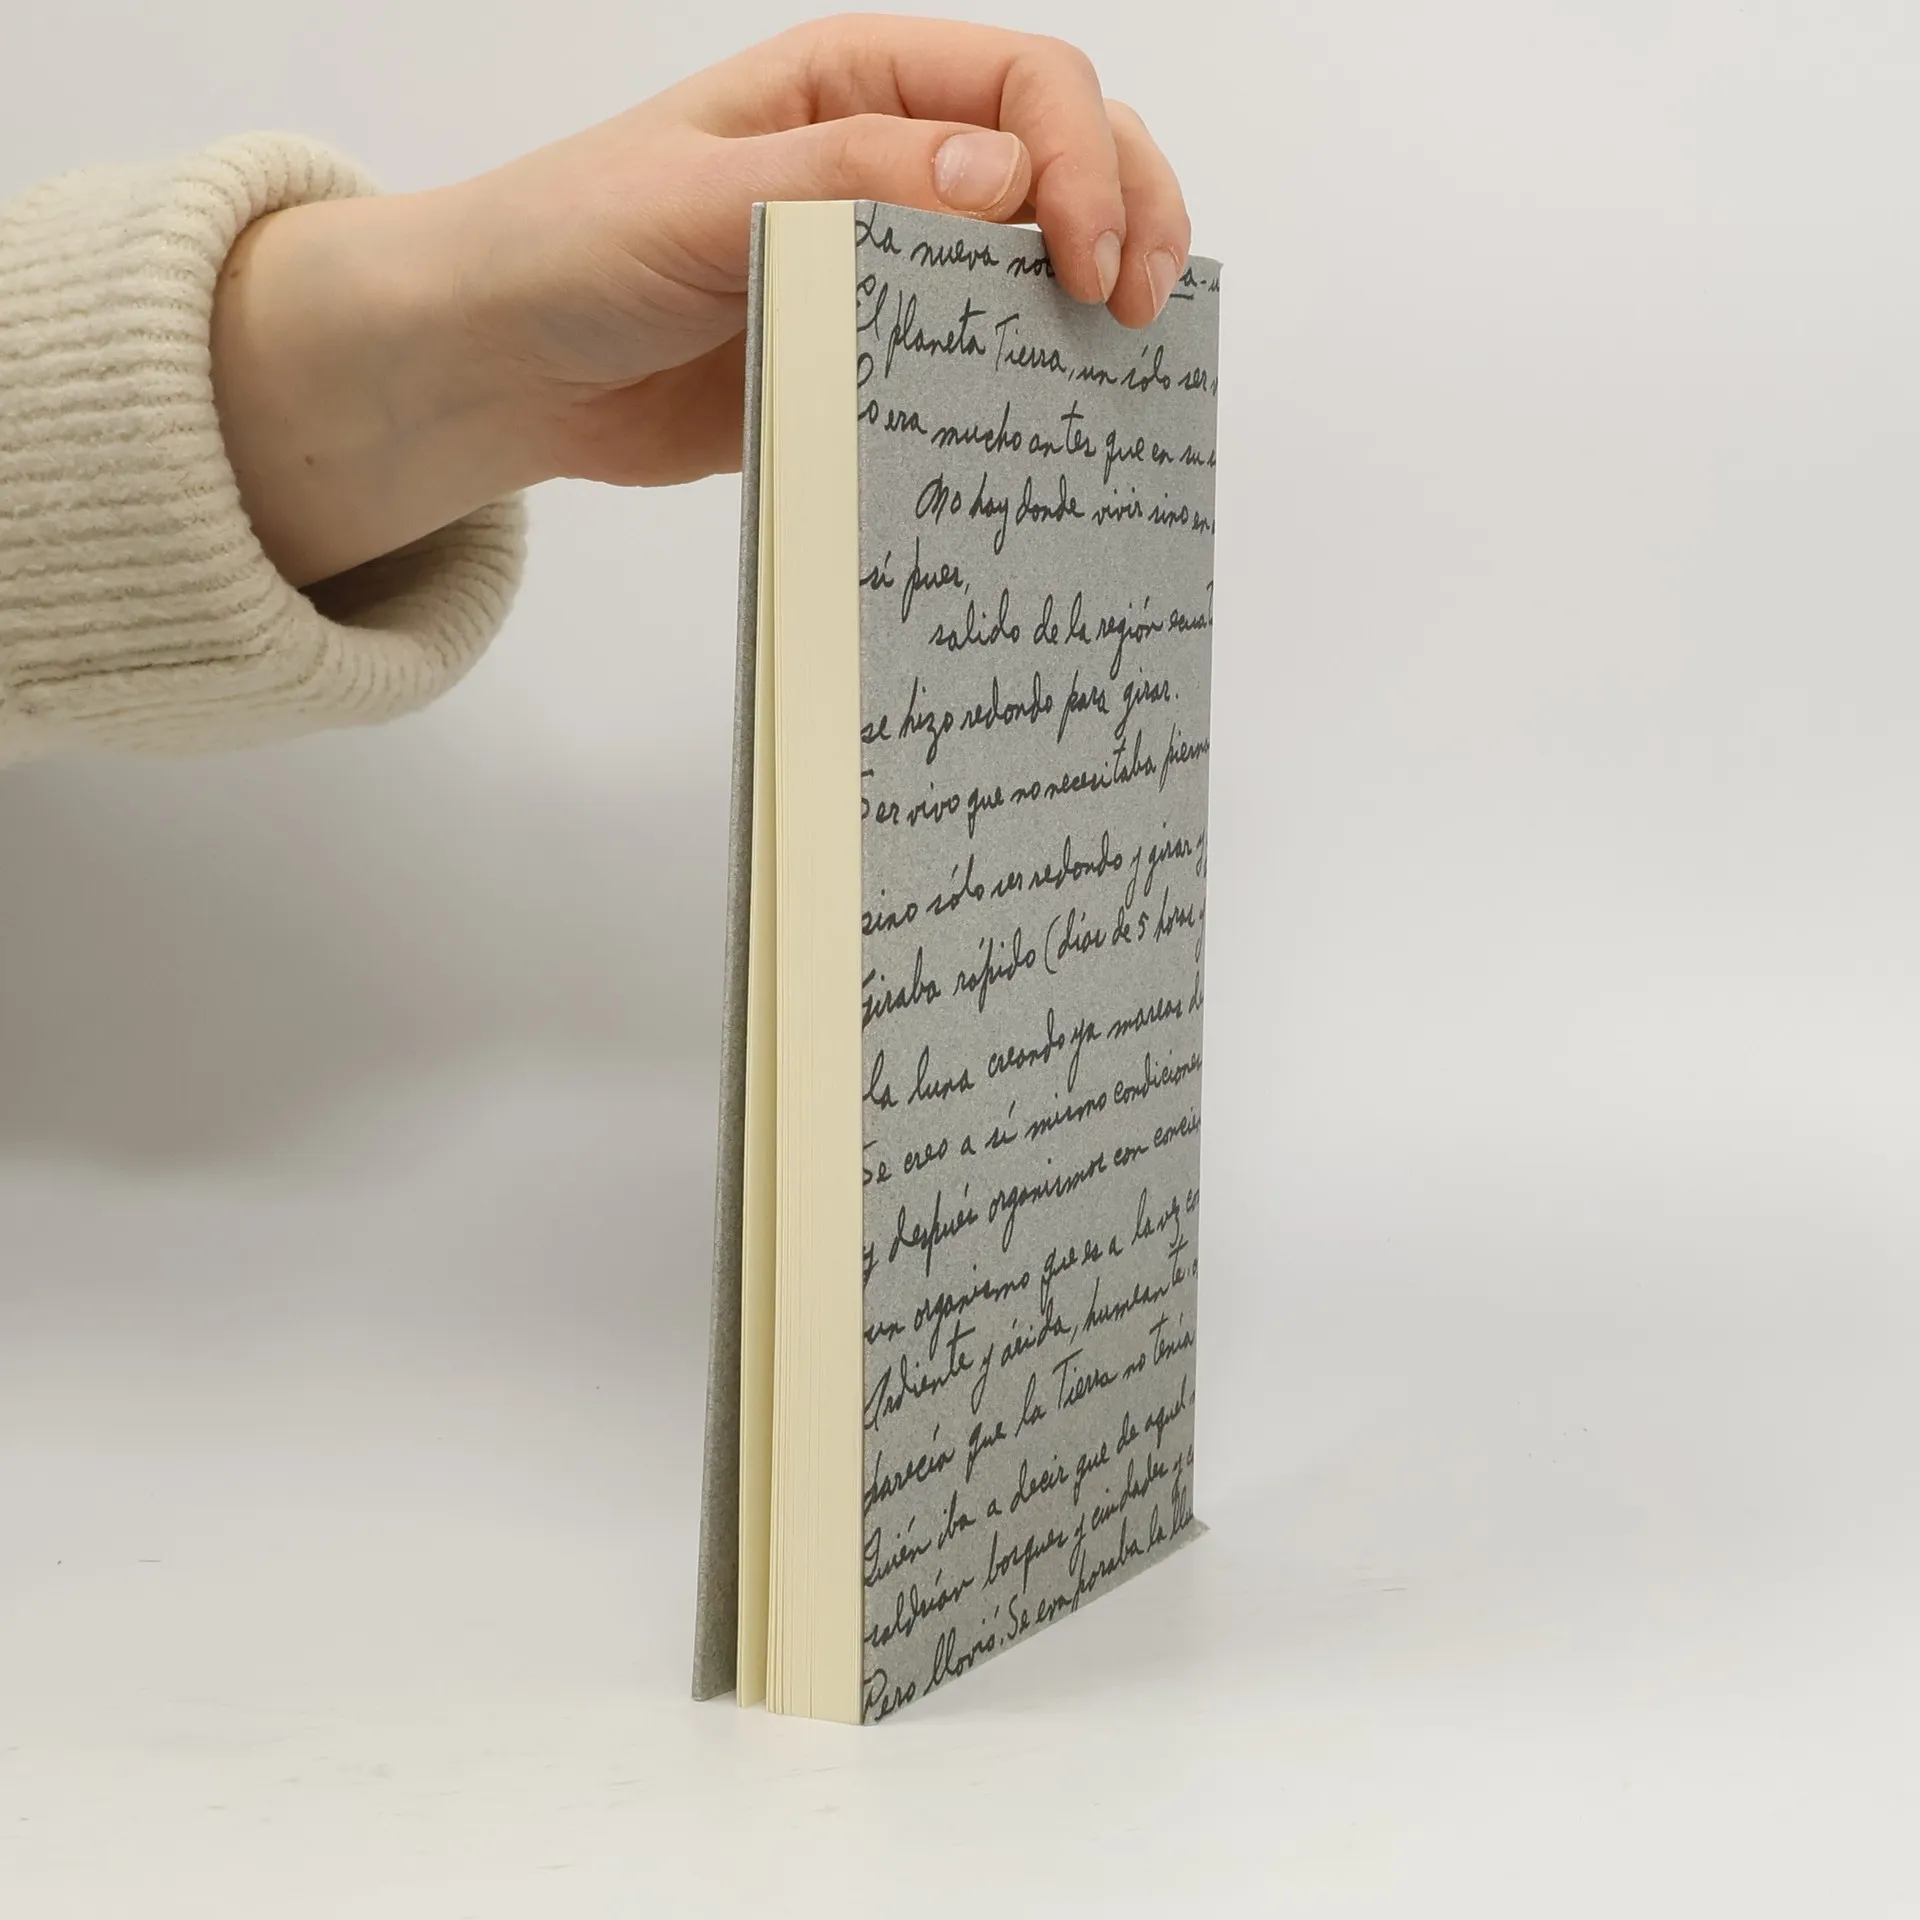 La nueva
El planeta Tierra, un sólo ser
era mucho antes que en su
No hay donde vivir sino en
sí pues,
salido de la región
se hizo redondo para girar.
Ser vivo que no necesitaba
sino sólo ser redondo y girar y
Giraba rápido (días de 5 horas y
la luna creando ya mareas
Se creo a sí mismo condiciones
y después organismos con
un organismo que es a la vez
Ardiente y árida, humeante.
parecía que la Tierra no tenía
Quién iba a decir que de aquel
saldrían bosques y ciudades y
Pero llovió. Se evaporaba la